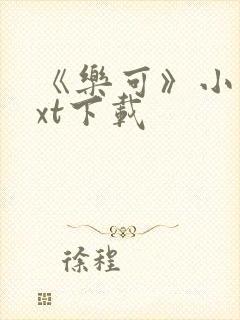 《樂可》小
xt下載
徐程